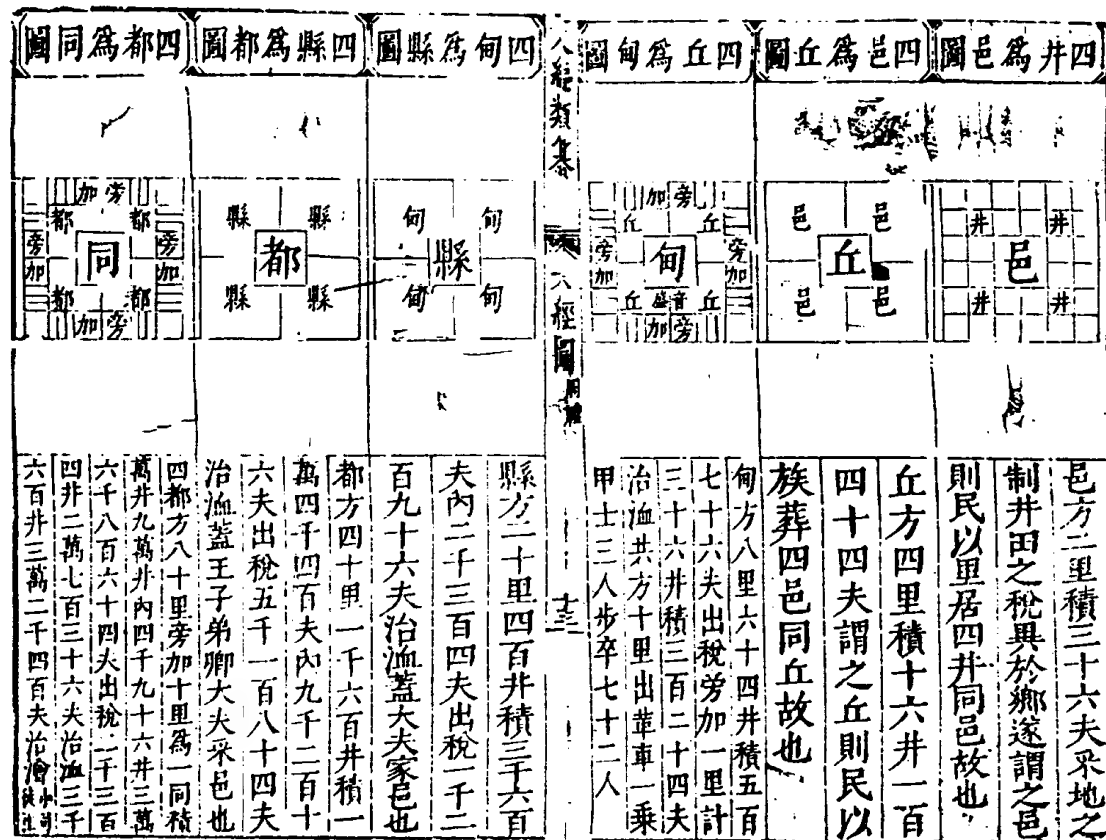 四井爲邑圖
井
井
邑
井
井
邑方二里積三十六夫采地之
制井田之稅異於鄉遂謂之邑
則民以里居四井同邑故也
四邑爲丘圖
邑
邑
丘
邑
邑
丘方四里積十六井一百
四十四夫謂之丘則民以
族葬四邑同丘故也
四丘爲甸圖
旁加
丘
丘
旁加
甸
旁加
音盛
丘
丘
旁加
甸方八里六十四井積五百
七十六夫出稅旁加一里計
三十六井積三百二十四夫
治洫共方十里出革車一乗
甲士三人步卒七十二人
類
六經圖
周禮
十三
四甸爲縣圖
甸
甸
縣
甸
甸
縣方二十里四百井積三千六百
夫內二千三百四夫出稅一千二
百九十六夫治洫蓋大夫家邑也
四縣爲都圖
縣
縣
都
縣
縣
都方四十里一千六百井積一
萬四千四百夫內九千二百十
六夫出稅五千一百八十四夫
治洫蓋王子弟卿大夫采邑也
四都爲同圖
旁加
都
都
旁加
同
旁加
都
都
旁加
四都方八十里旁加十里爲一同積
萬井九萬井內四千九十六井三萬
六千八百六十四夫出稅二千三百
四井二萬七百三十六夫治洫三千
六百井三萬二千四百夫治澮